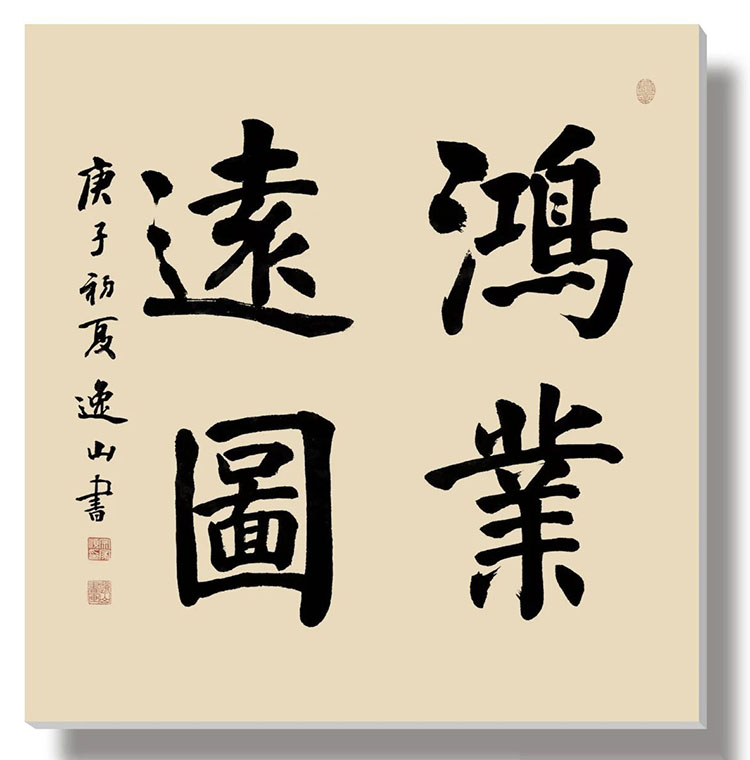 鴻業
遠圖
庚子初夏逸山書